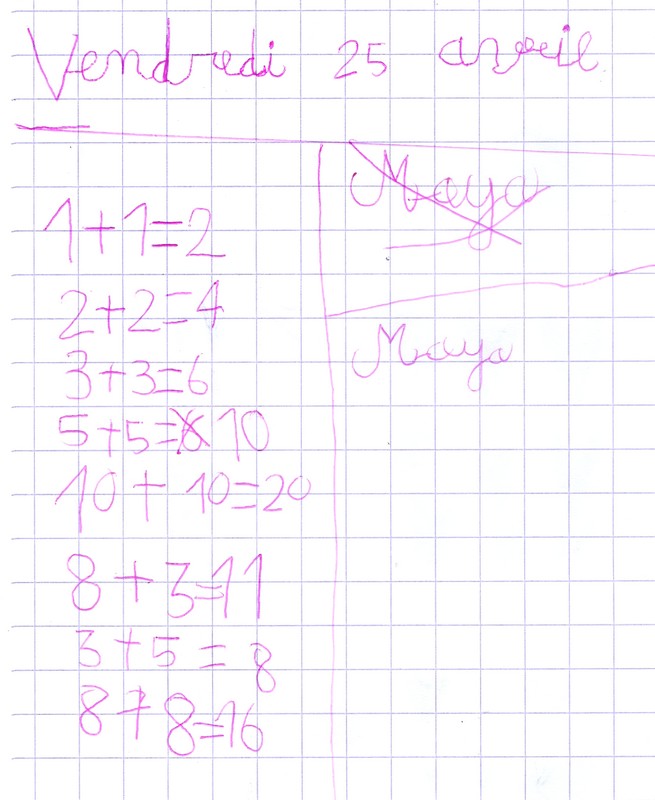 Vendredi 25 avril
Maya
1+1=2
2+2=4
3+3=6
Maya
5+5=6 10
10+10=20
8+3=11
3+5=8
8+8=16